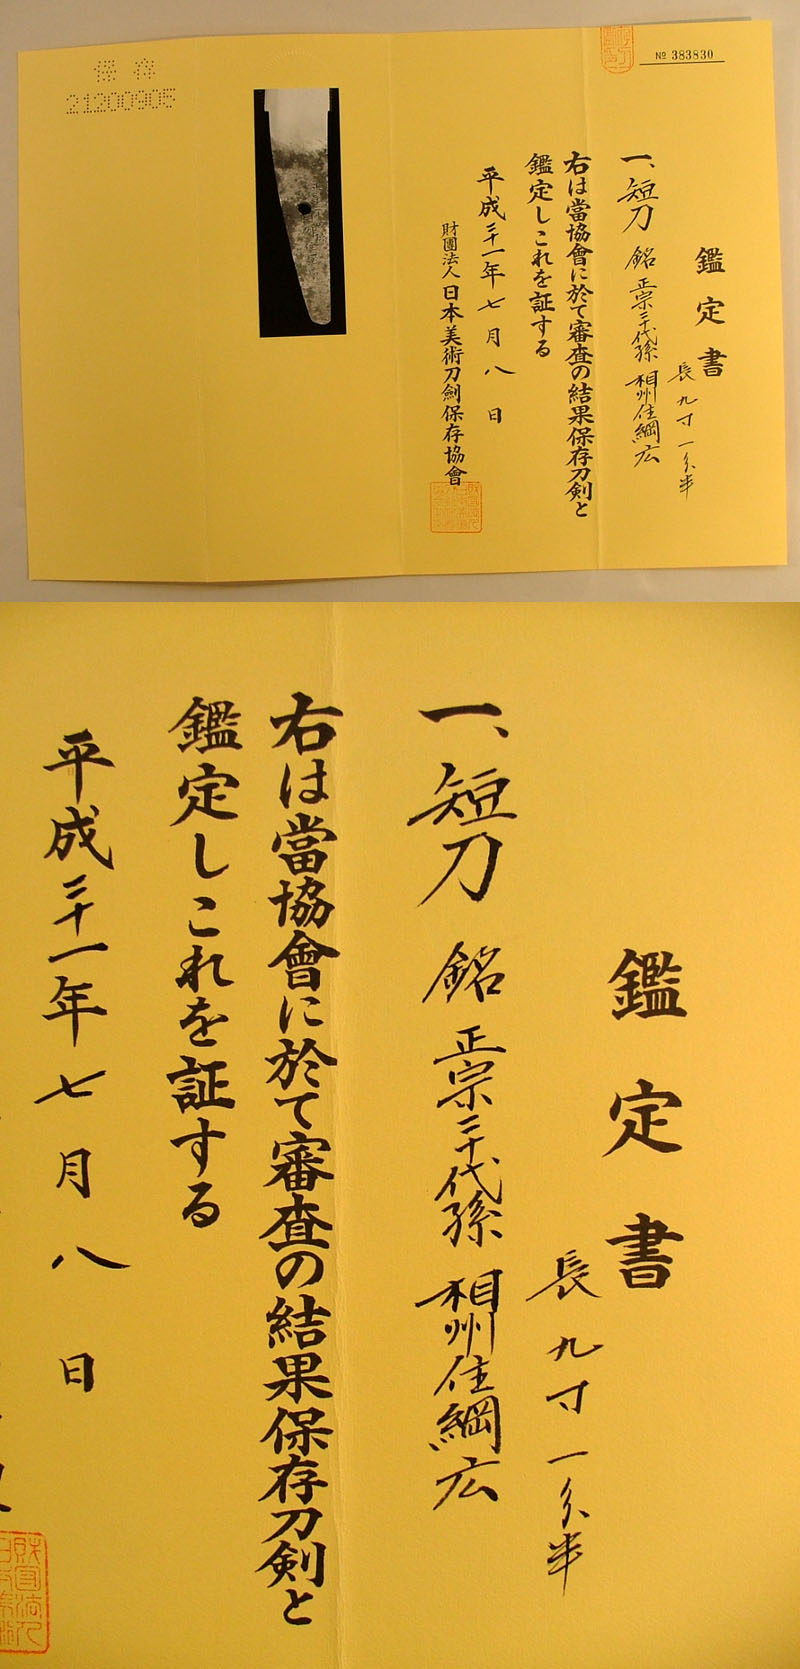 № 383830
鑑定書
長九寸一分半
一、短刀 銘 正宗二十代孫 相州住綱広
右は當協會に於て審査の結果保存刀剣と
鑑定しこれを証する
平成二十一年七月八日
財團法人日本美術刀劍保存協會
保存
21200905
鑑定書
長九寸一分半
一、短刀 銘 正宗二十代孫 相州住綱広
右は當協會に於て審査の結果保存刀剣と
鑑定しこれを証する
平成二十一年七月八日